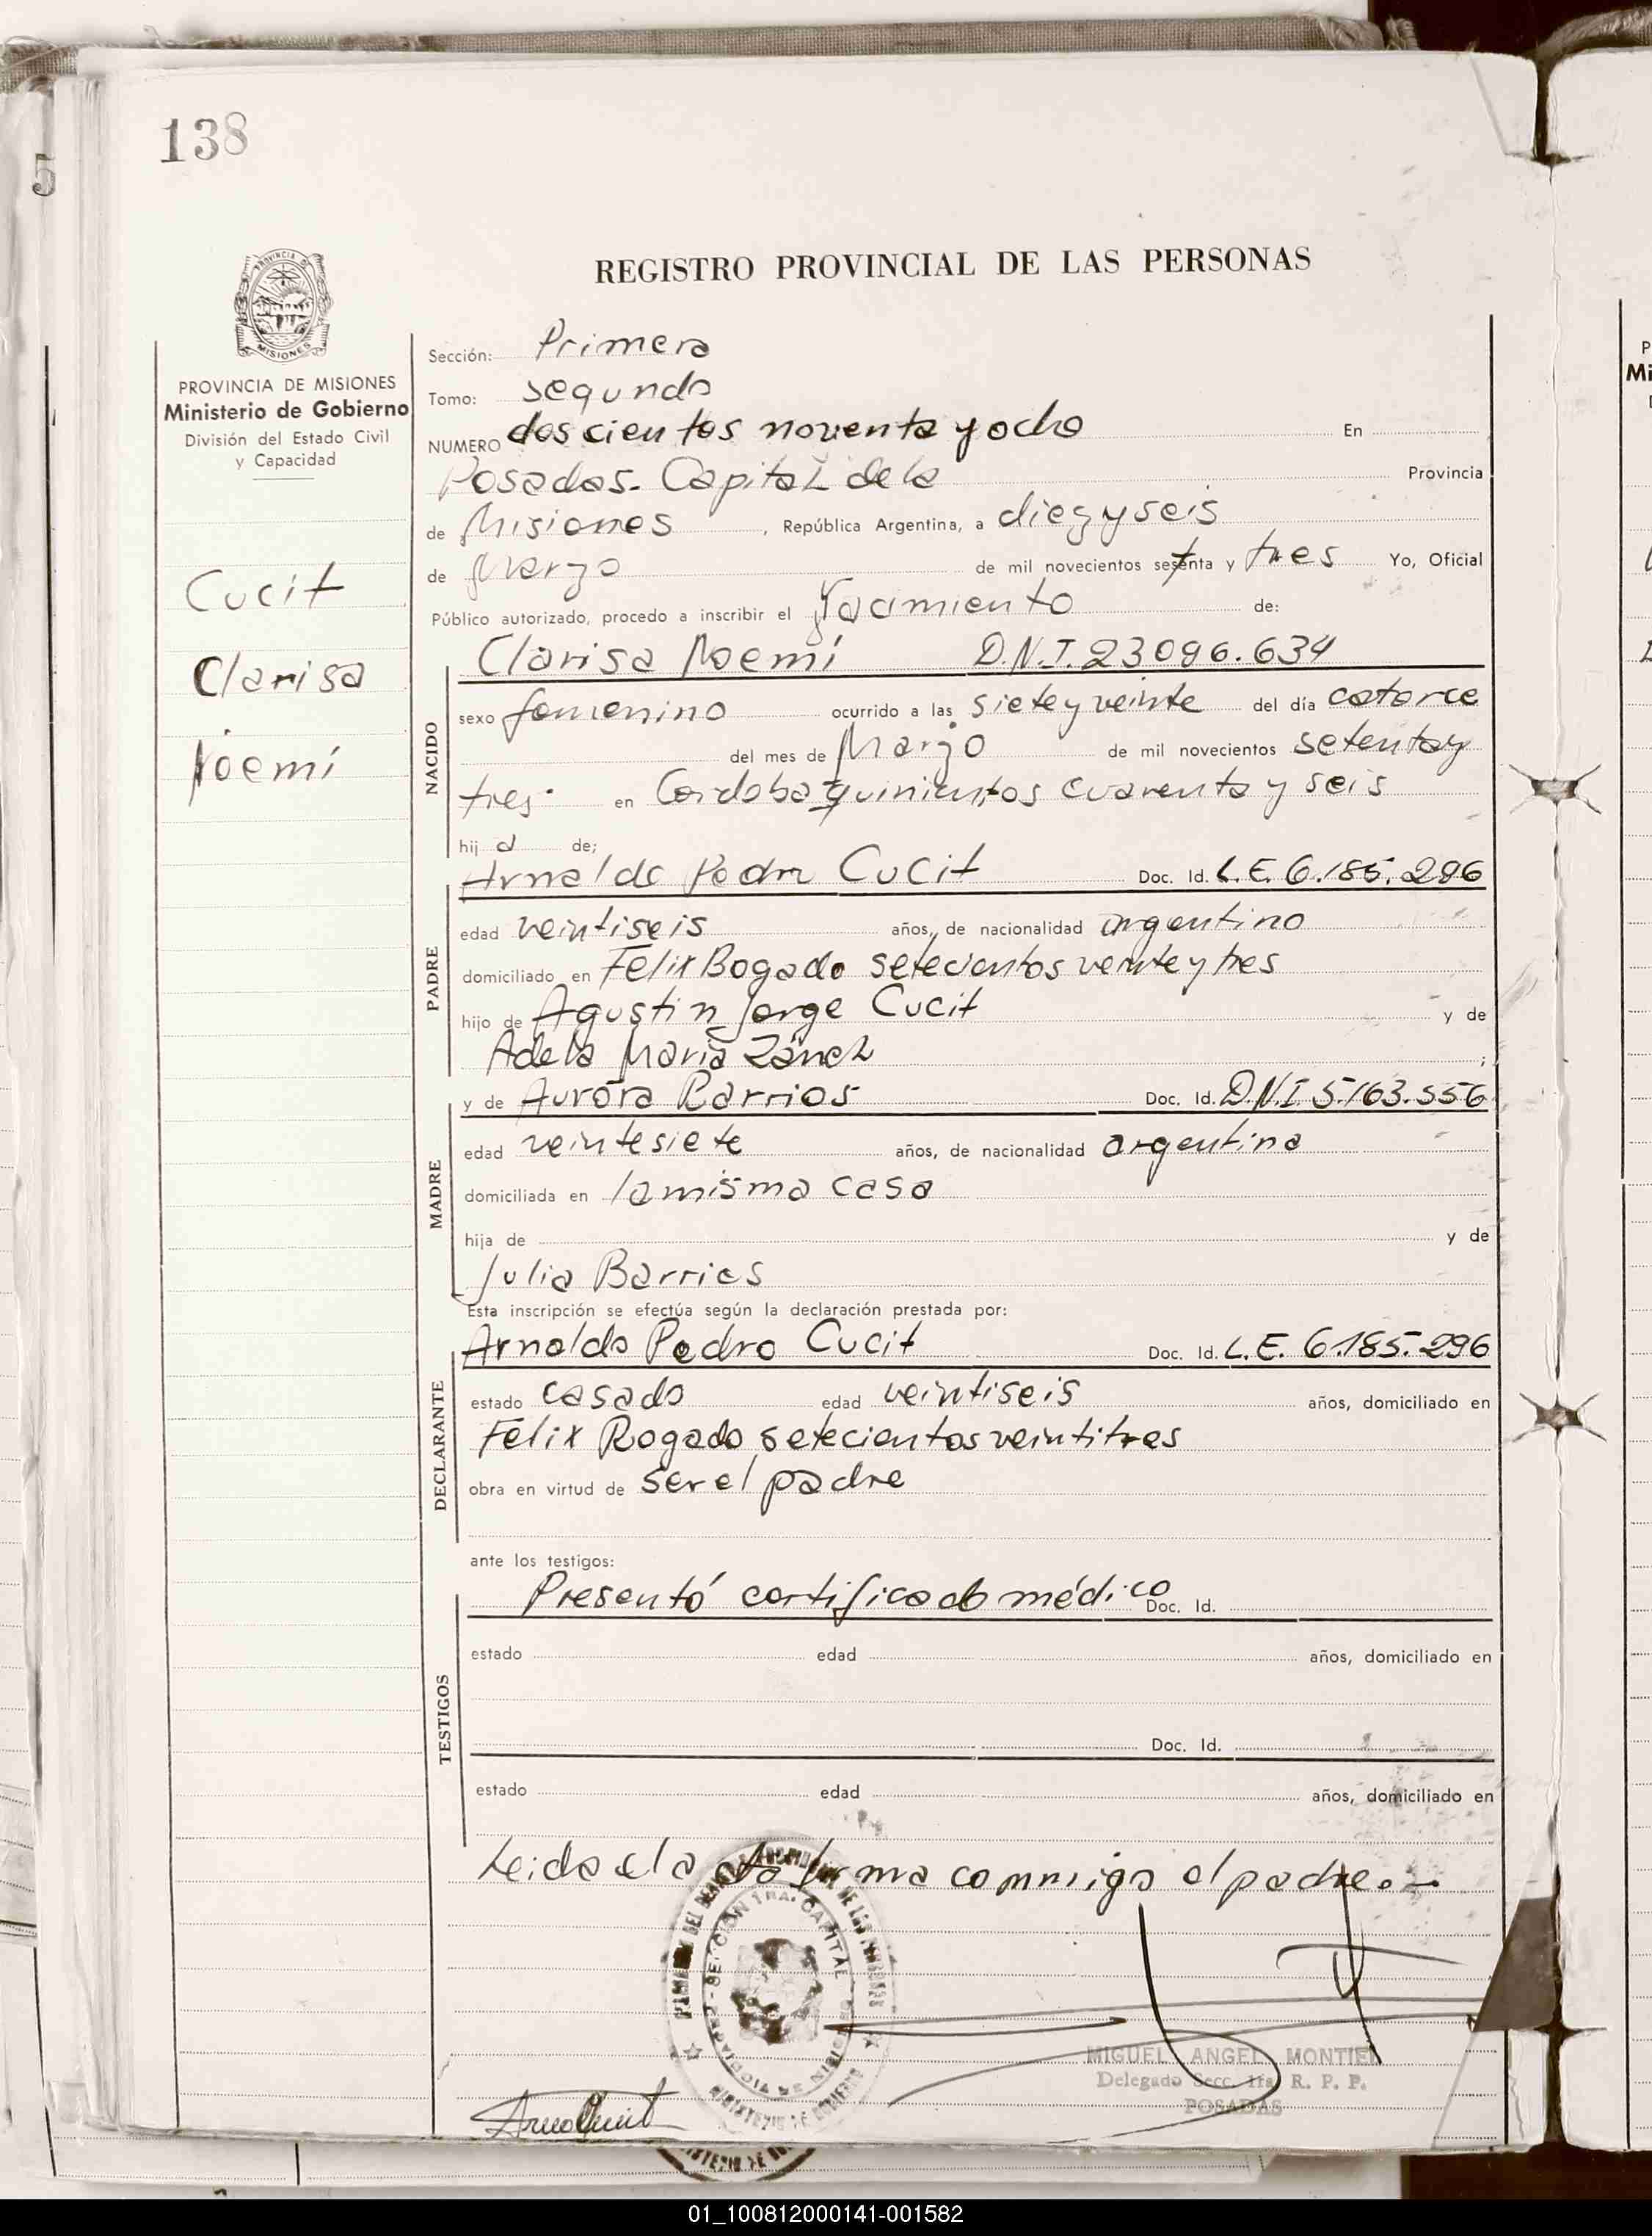 138
5
REGISTRO PROVINCIAL DE LAS PERSONAS
PROVINCIA DE MISIONES
Ministerio de Gobierno
División del Estado Civil
y Capacidad
Cucit
Clarisa
Noemí
Sección: Primera
Tomo: segundo
NUMERO doscientos noventa y ocho En
Posadas. Capital de la Provincia
de Misiones, República Argentina, a diez y seis
de Marzo de mil novecientos setenta y tres Yo, Oficial
Público autorizado, procedo a inscribir el Nacimiento de:
Clarisa Noemí D.N.I. 23.096.634
NACIDO
sexo femenino ocurrido a las siete y veinte del día catorce
del mes de Marzo de mil novecientos setenta y
tres en Cordoba quinientos cuarenta y seis
hij a de;
Arnaldo Pedro Cucit Doc. Id. L.E. 6.185.296
PADRE
edad veintiseis años, de nacionalidad argentino
domiciliado en Felix Bogado setecientos veinte y tres
hijo de Agustin Jorge Cucit y de
Adela María Zánel;
y de Aurora Barrios Doc. Id. D.N.I. 5.163.556
MADRE
edad veintesiete años, de nacionalidad argentina
domiciliada en la misma casa
hija de y de
Julia Barrios
Esta inscripción se efectúa según la declaración prestada por:
Arnaldo Pedro Cucit Doc. Id. L.E. 6.185.296
DECLARANTE
estado casado edad veintiseis años, domiciliado en
Felix Bogado setecientos veintitres
obra en virtud de ser el padre
ante los testigos:
Presentó certificado médico Doc. Id.
TESTIGOS
estado edad años, domiciliado en
Doc. Id.
estado edad años, domiciliado en
Leida el acta firma conmigo el padre.-
MIGUEL ANGEL MONTIEL
Delegado Secc. 1ra. R. P. P.
POSADAS
01_100812000141-001582